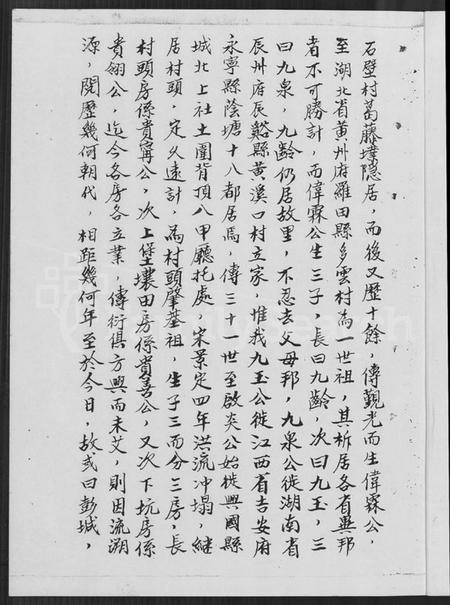 石壁村葛藤墺隱居，而後又歷十餘，傳觀光而生偉霖公，
至湖北省黃州府羅田縣多雲村為一世祖，其析居各省與邦
者不可勝計，而偉霖公生三子，長曰九齡，次曰九玉，三
曰九泉，九齡仍居故里，不忍去父母邦，九泉公徙湖南省
辰州府辰谿縣黃溪口村立家，惟我九玉公徙江西省吉安府
永寧縣蔭塘十八都居焉，傳三十一世至啟炎公始徙興國縣
城北上社土圍背頂八甲廳托處，宋景定四年洪流冲塌，繼
居村頭，定久遠計，為村頭肇基祖，生子三而分三房，長
村頭房係貴寗公，次上堡壊田房係貴善公，又次下坑房係
貴翎公，迄今各房各立業，傳衍俱方興而未艾，則因流溯
源，閱歷幾何朝代，相距幾何年至於今日，故或曰彭城，